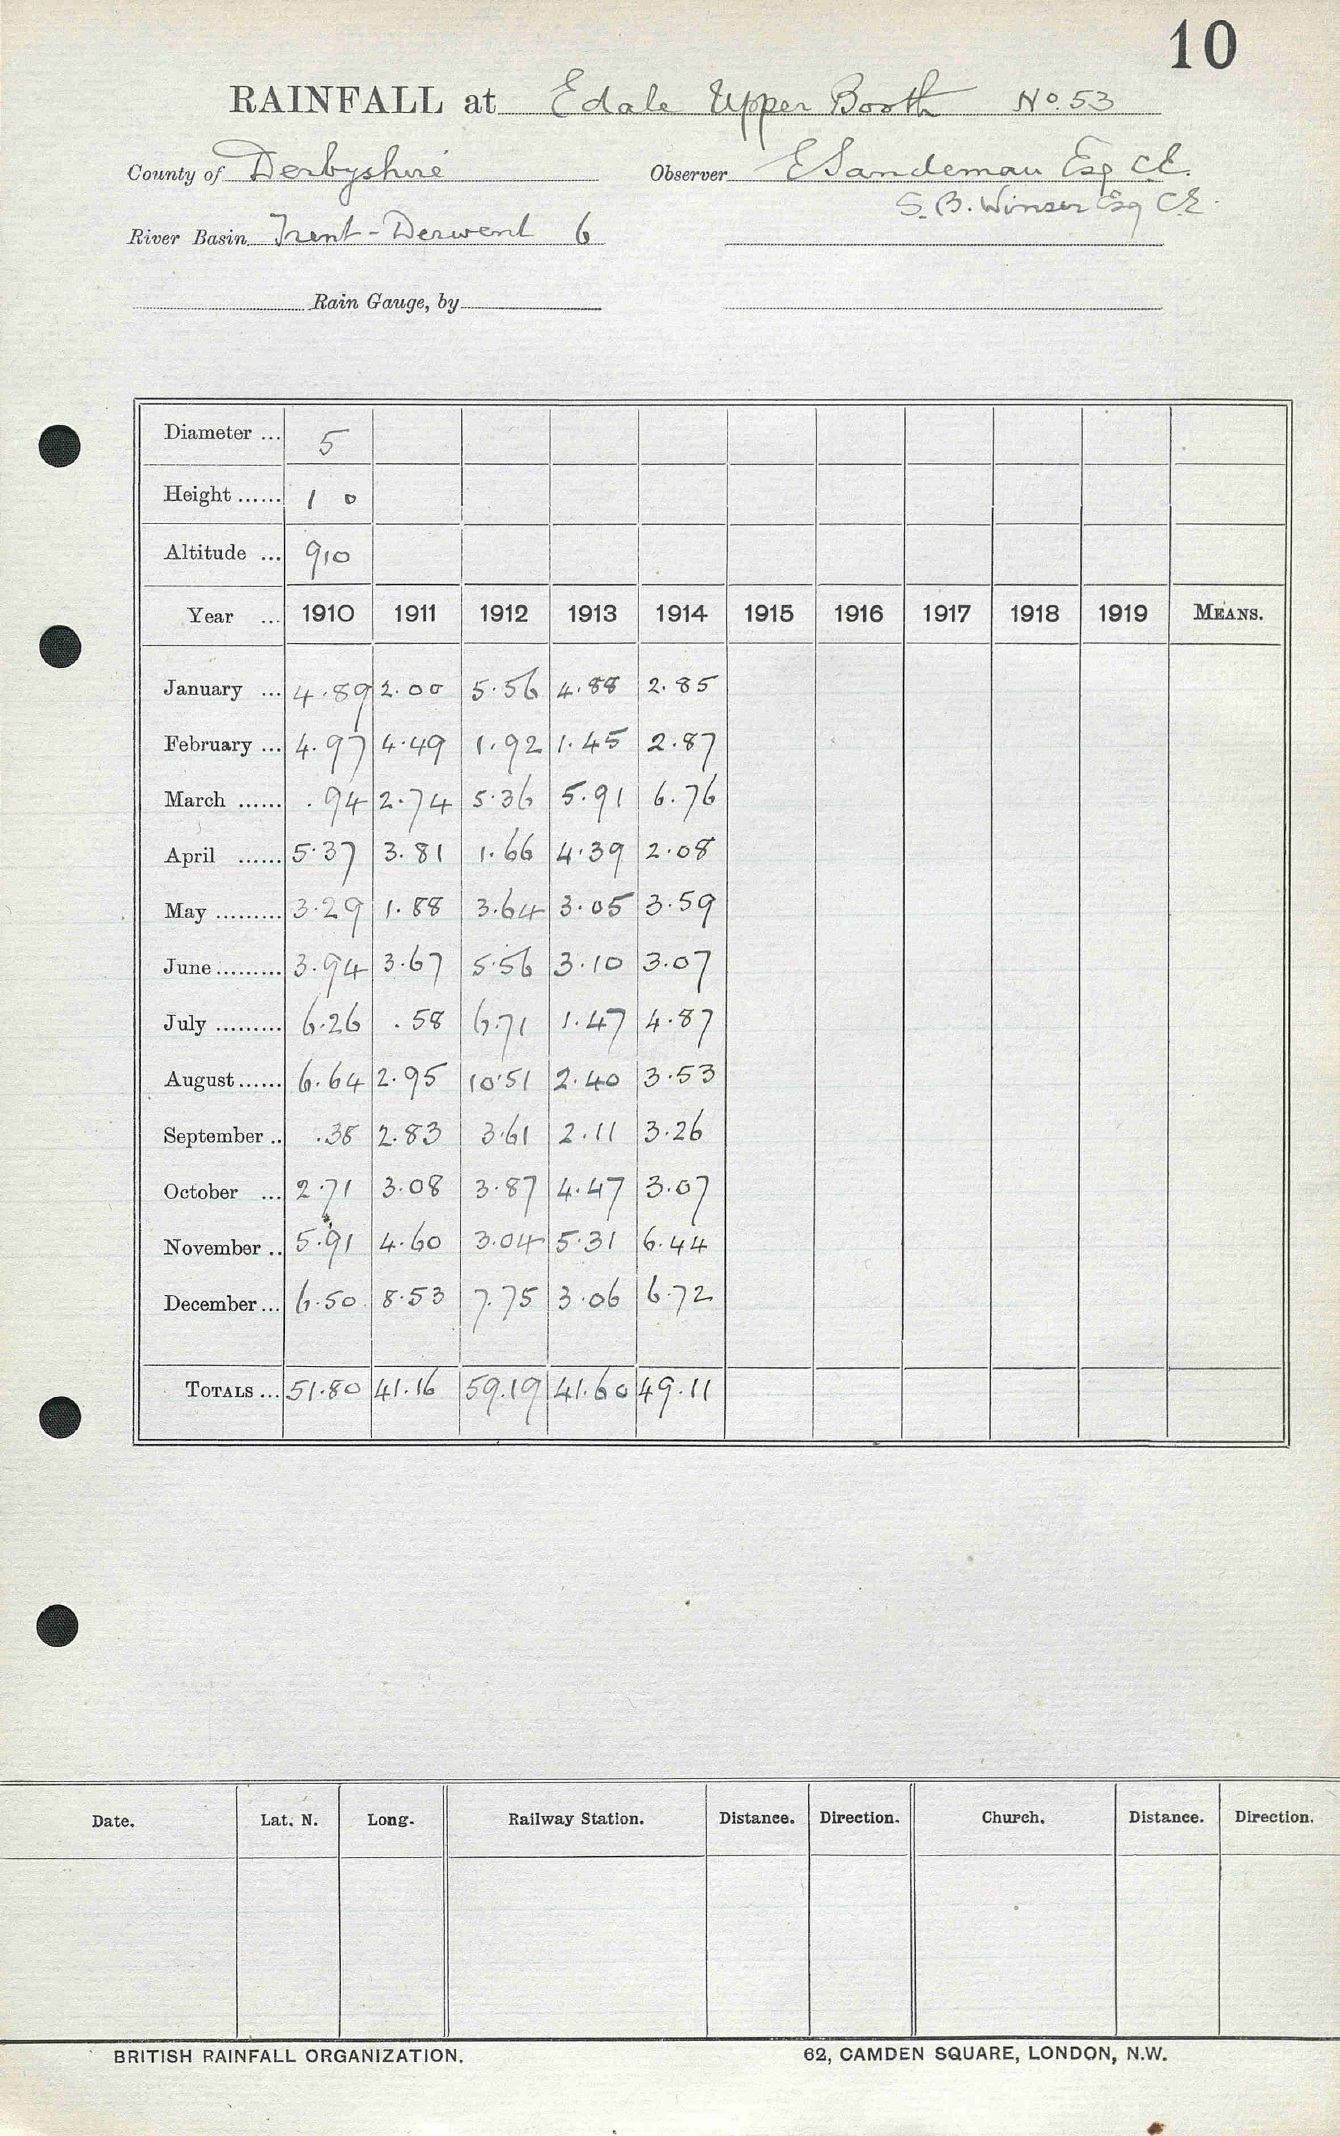 10
RAINFALL at Edale Upper Booth No. 53
County of Derbyshire Observer E Sandeman Esq C.E.
S. B. Winser Esq C.E.
River Basin Trent - Derwent 6
Rain Gauge, by
Diameter ... 5
Height ...... 1 0
Altitude ... 910
Year ... 1910 1911 1912 1913 1914 1915 1916 1917 1918 1919 MEANS.
January ... 4.89 2.00 5.56 4.88 2.85
February ... 4.97 4.49 1.92 1.45 2.87
March ...... .94 2.74 5.36 5.91 6.76
April ...... 5.37 3.81 1.66 4.39 2.08
May ......... 3.29 1.88 3.64 3.05 3.59
June ......... 3.94 3.67 5.56 3.10 3.07
July ......... 6.26 .58 6.71 1.47 4.87
August ...... 6.64 2.95 10.51 2.40 3.53
September .. .38 2.83 3.61 2.11 3.26
October ... 2.71 3.08 3.87 4.47 3.07
November .. 5.91 4.60 3.04 5.31 6.44
December ... 6.50 8.53 7.75 3.06 6.72
TOTALS ... 51.80 41.16 59.19 41.60 49.11
Date. Lat. N. Long. Railway Station. Distance. Direction. Church. Distance. Direction.
BRITISH RAINFALL ORGANIZATION. 62, CAMDEN SQUARE, LONDON, N.W.